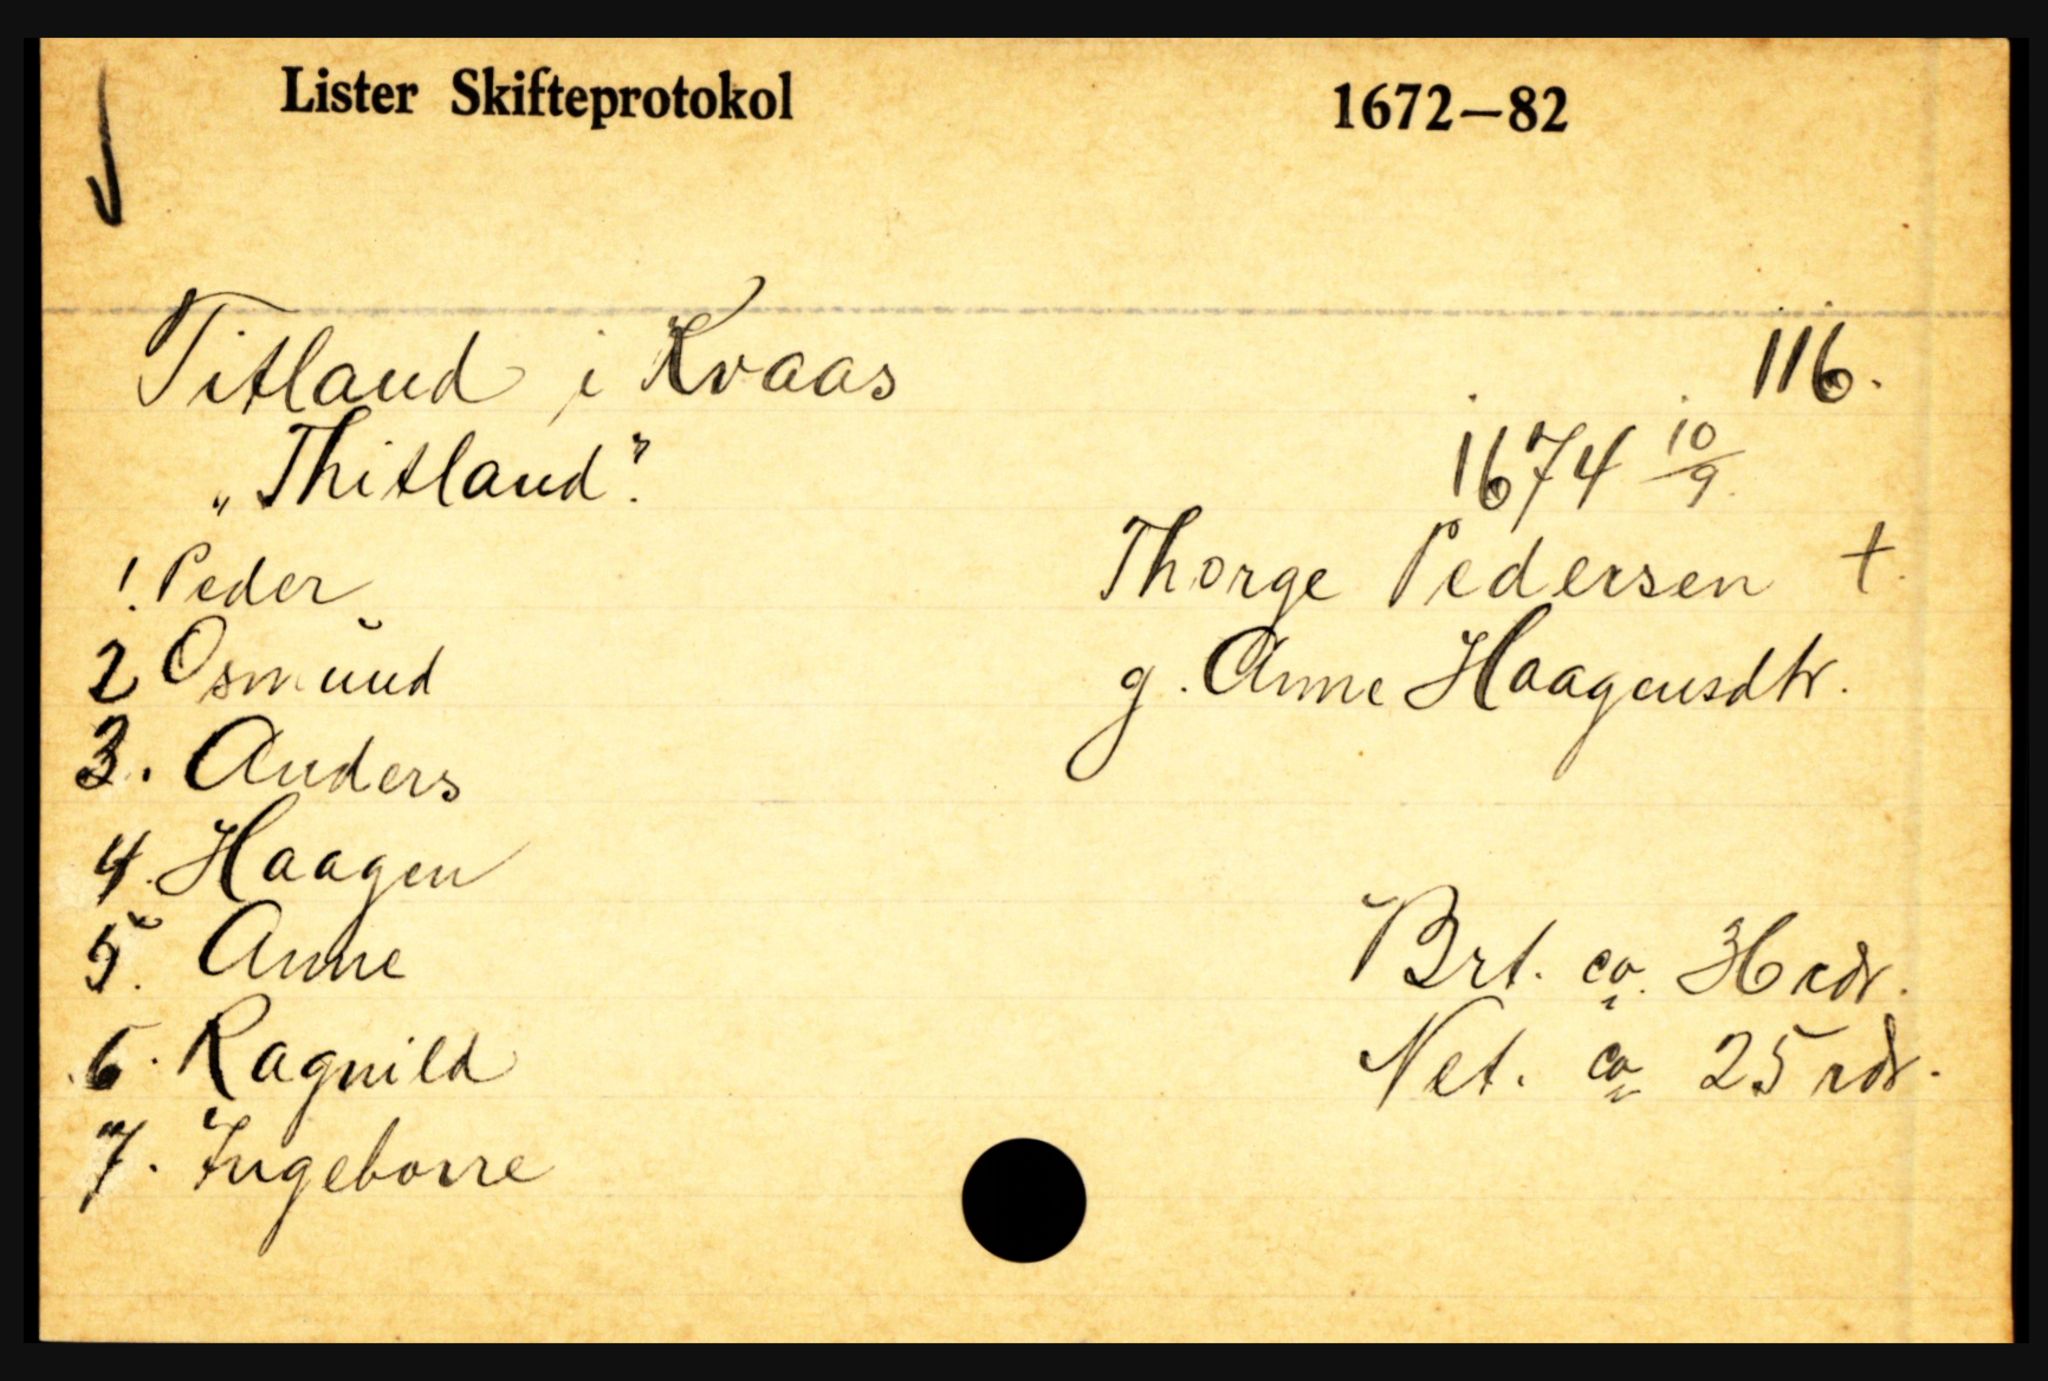 Lister Skifteprotokol 1672—82
Titland i Kvaas 116.
„Thitland”. 1674 10/9.
1. Peder Thorge Pedersen †.
2 Osmund g. Anne Haagensdtr.
3. Anders
4. Haagen
5. Anne Brt. ca. 36 rdr.
6. Ragnild Net. ca 25 rdr.
7. Ingeborre